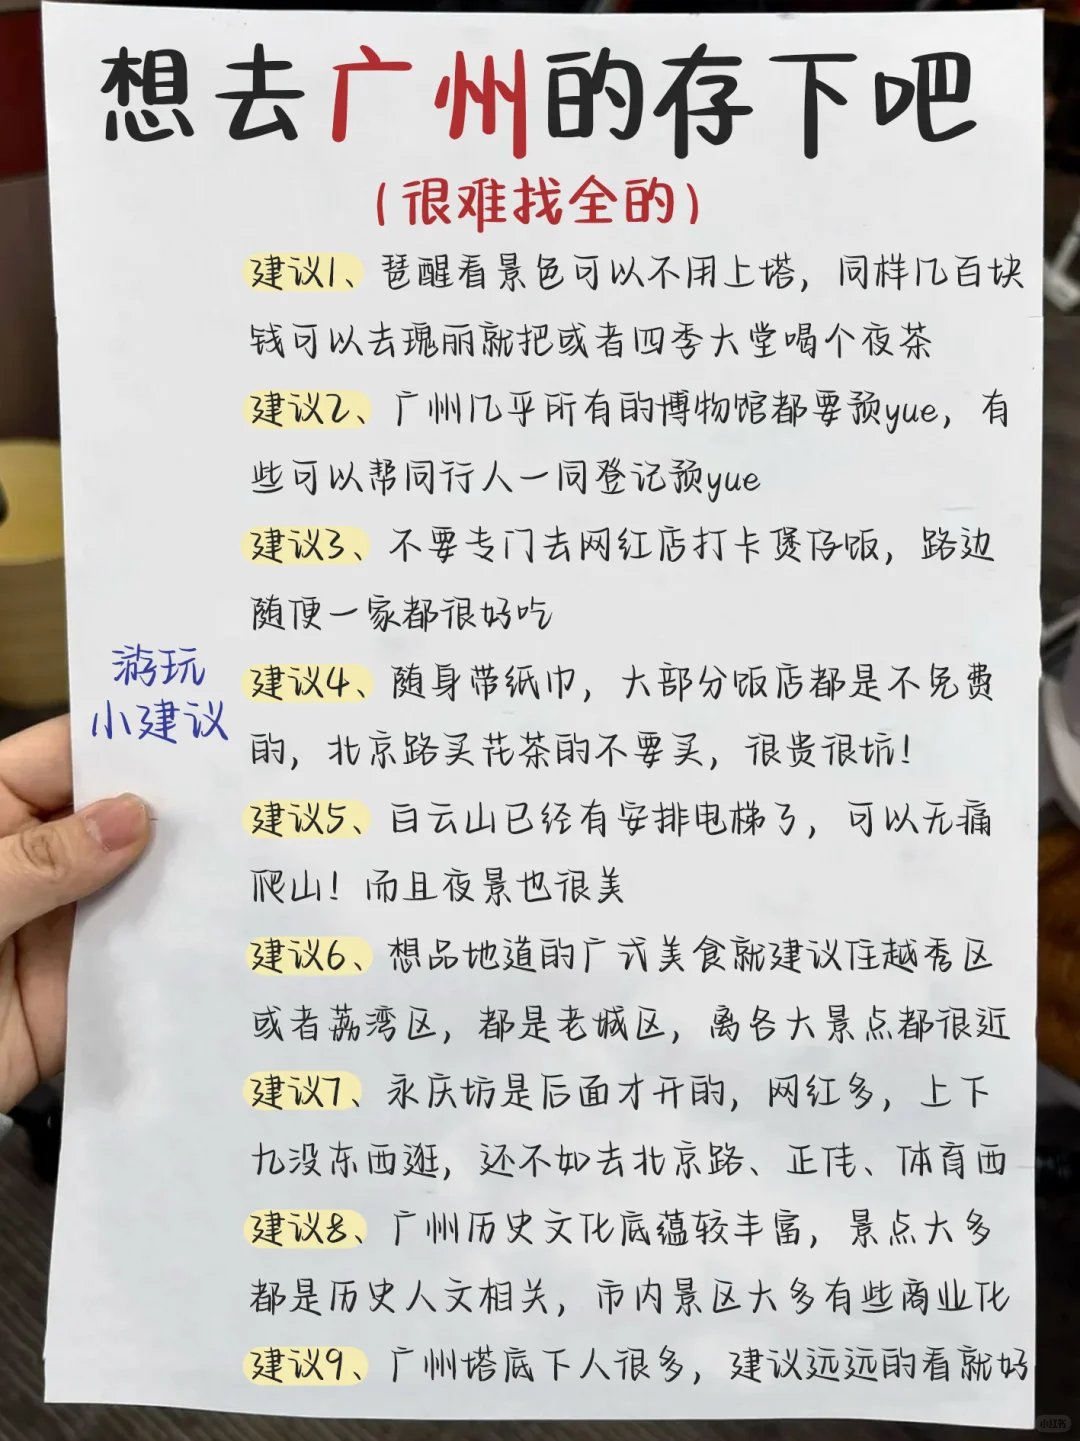 想去广州的存下吧
(很难找全的)
建议1、琶醒看景色可以不用上塔，同样几百块
钱可以去瑰丽就把或者四季大堂喝个夜茶
建议2、广州几乎所有的博物馆都要预yue，有
些可以帮同行人一同登记预yue
建议3、不要专门去网红店打卡煲仔饭，路边
随便一家都很好吃
游玩
小建议
建议4、随身带纸巾，大部分饭店都是不免费
的，北京路买花茶的不要买，很贵很坑！
建议5、白云山已经有安排电梯了，可以无痛
爬山！而且夜景也很美
建议6、想品地道的广式美食就建议住越秀区
或者荔湾区，都是老城区，离各大景点都很近
建议7、永庆坊是后面才开的，网红多，上下
九没东西逛，还不如去北京路、正佳、体育西
建议8、广州历史文化底蕴较丰富，景点大多
都是历史人文相关，市内景区大多有些商业化
建议9、广州塔底下人很多，建议远远的看就好
小红书